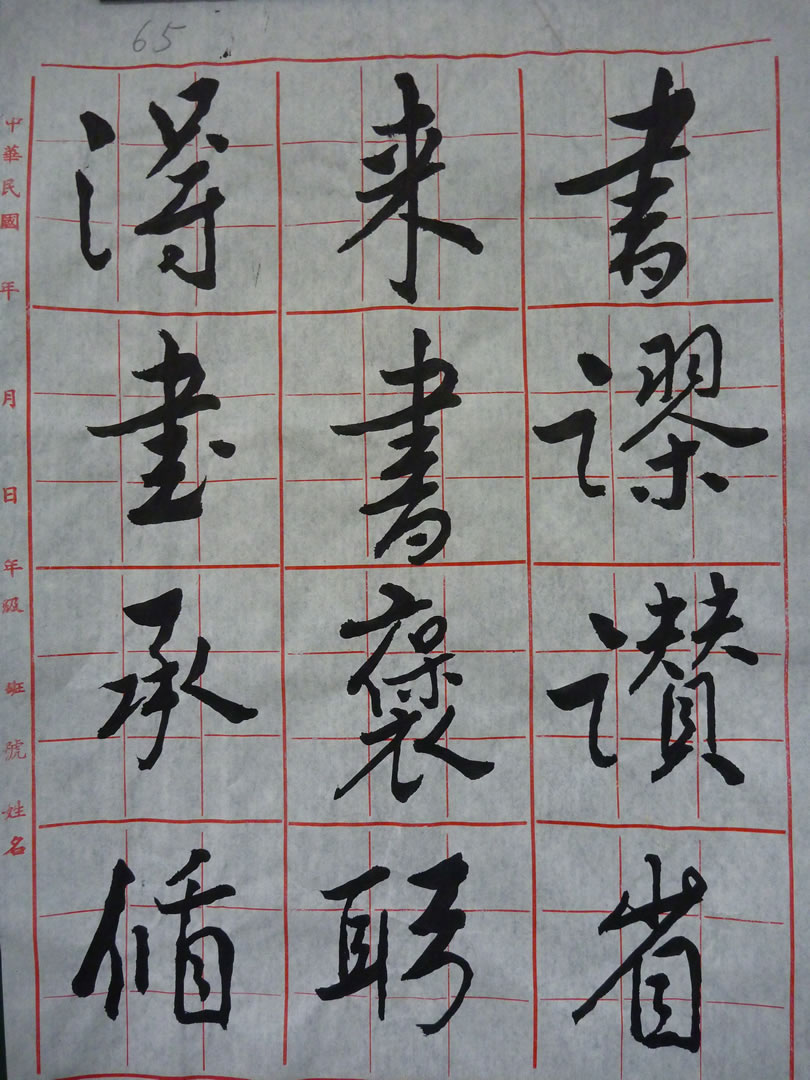 65
得来書
書書謬
承褒讚
循躬省
中華民國 年 月 日 年級 班 號 姓名